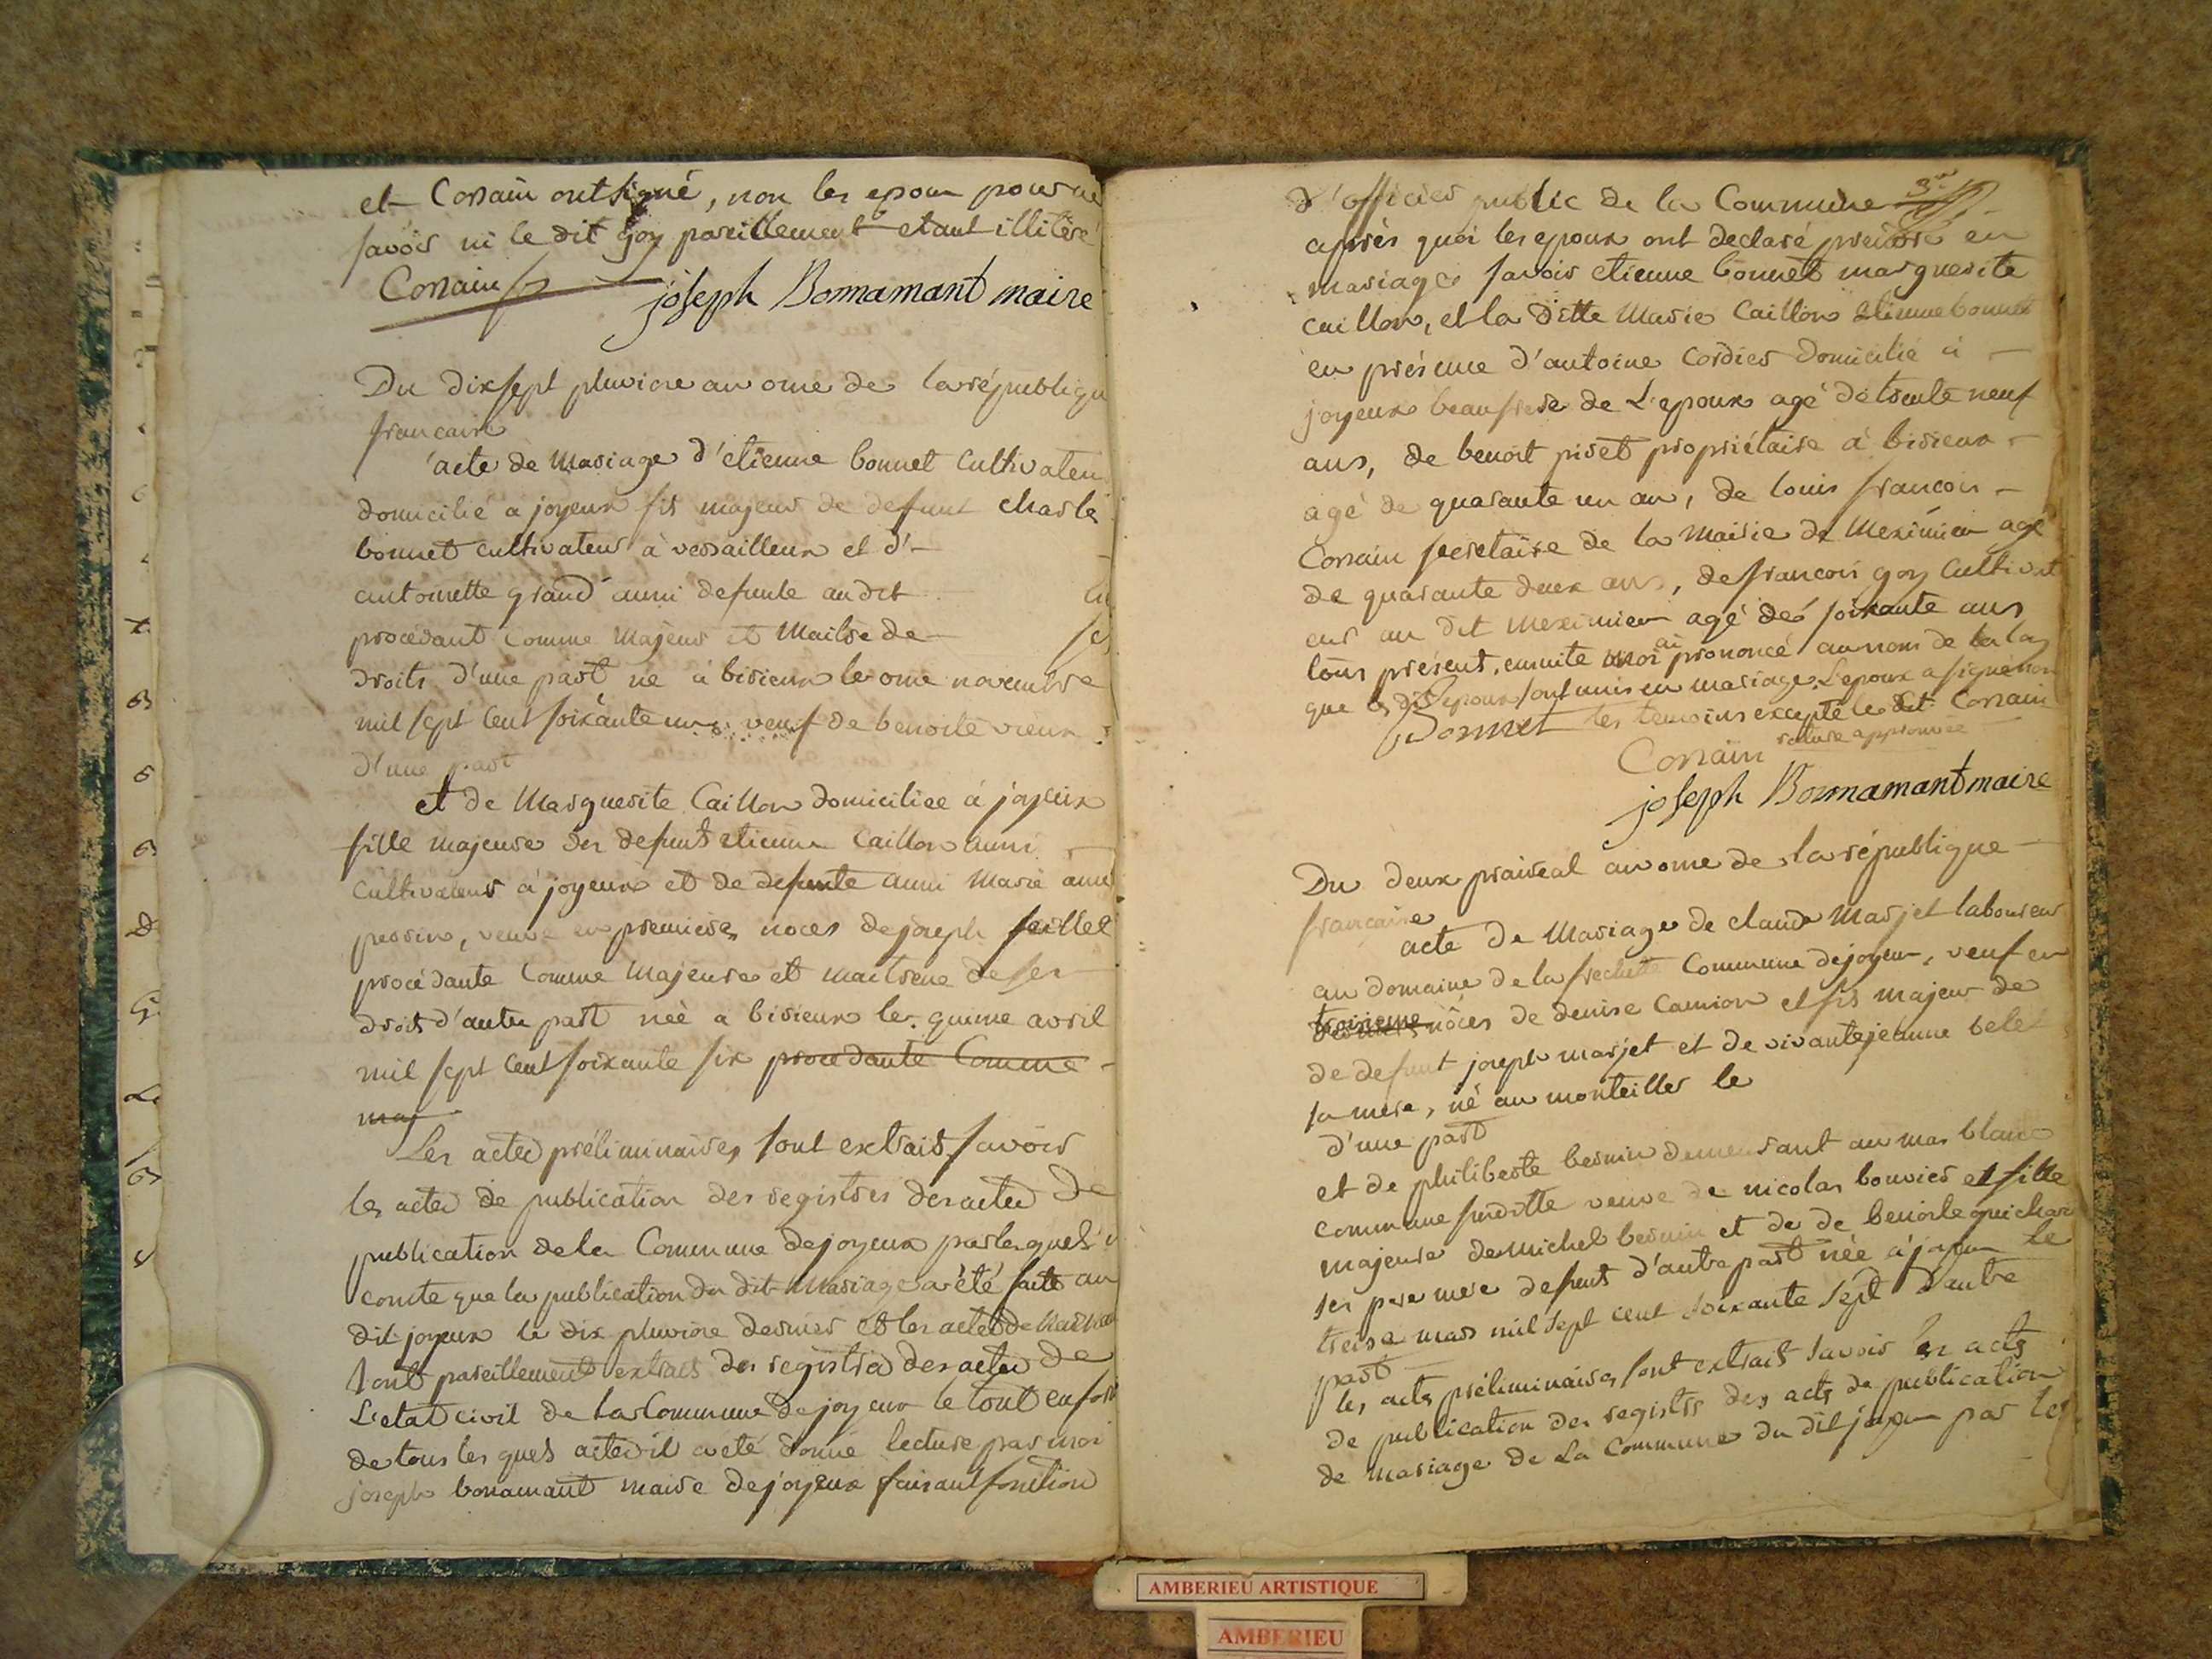 et Corrain ont signé, non les epoux pour ne
savoir ni le dit goy pareillement etant illitéré
Corrain
joseph Bonnamant maire
Du dix sept pluviose an onze de la républiqu
francaise
acte de Mariage d'etienne bonnet cultivateu
domicilié a joyeux fils majeur de defunt Charle
bonnet cultivateur à versailleux et d'
antoinette grand aussi defunte au dit
procédant comme Majeur et Maitre de
droits d'une part né à birieux le onze novembre
mil sept cent soixante un veuf de benoite vieux
d'une part
et de Marguerite Caillon domiciliee à joyeux
fille majeure des defunts etienne Caillon aussi
Cultivateur à joyeux et de defunte aussi Marie anne
perrin, veuve en premieres noces de joseph feillet
procédante Comme Majeure et maitresse de ses
droits d'autre part née a birieux le quinze avril
mil sept cent soixante six procedante Comme
maj
Les actes préliminaires sont extraits savoir
les actes de publication des registres des actes de
publication de la Commune de joyeux par lesquels i
conste que la publication du dit Mariage a été faite au
dit joyeux le dix pluviose dernier et les actes de
sont pareillement extraits des registres des actes de
L'etat civil de la Commune de joyeux le tout en for
de tous les quels actes il a été donné lecture par moi
joseph bonamant maire de joyeux faisant fonction
d'officier public de la Commune
3e
après quoi les epoux ont declaré prendre en
mariage savoir etienne bonnet marguerite
caillon, et la ditte Marie Caillon Etienne bonnet
en présence d'antoine Cordier domicilié à
joyeux beaufrere de L'epoux agé de trente neuf
ans, de benoit piret propriétaire à birieux
agé de quarante un an, de louis francois
Corrain secretaire de la Mairie de Meximieu agé
de quarante deux ans, de francois goy Cultivat
eur au dit meximieu agé de soixante ans
tous présent, ensuite moi ai prononcé au nom de la loy
que les dits epoux sont unis en mariage. L'epoux a signé non
Bonnet les temoins excepté le dit Corrain
rature approuvée
Corrain
joseph Bonnamant maire
Du deux prairéal an onze de la république
francaise
acte de Mariage de claude Marjet laboureur
au domaine de la frechette Commune de joyeux, veuf en
troisieme noces de denise Camion et fils majeur de
de defunt joseph marjet et de vivante jeanne belet
sa mere, né au monteiller le
d'une part
et de philiberte bernin demeurant au mas blanc
commune susditte veuve de nicolas bouvier et fille
majeure de Michel bernin et de de benoite guichar
ses pere mere defunts d'autre part née à joyeux le
treise mars mil sept cent soixante sept d'autre
part
les acts préliminaires sont extrait savoir les acts
de publication des registrs des acts de publication
de mariage de La Commune du dit joyeux par les
AMBERIEU ARTISTIQUE
AMBERIEU